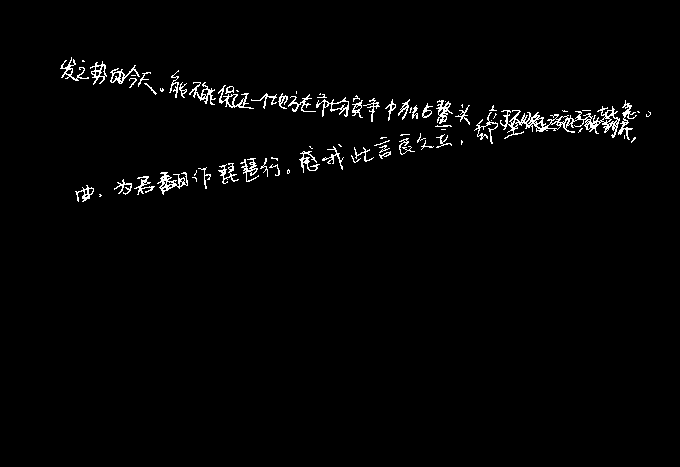 发之势的今天。能不能保证一个地方在市场竞争中独占鳌头
曲、为君翻作琵琶行。感我此言良久立，却坐